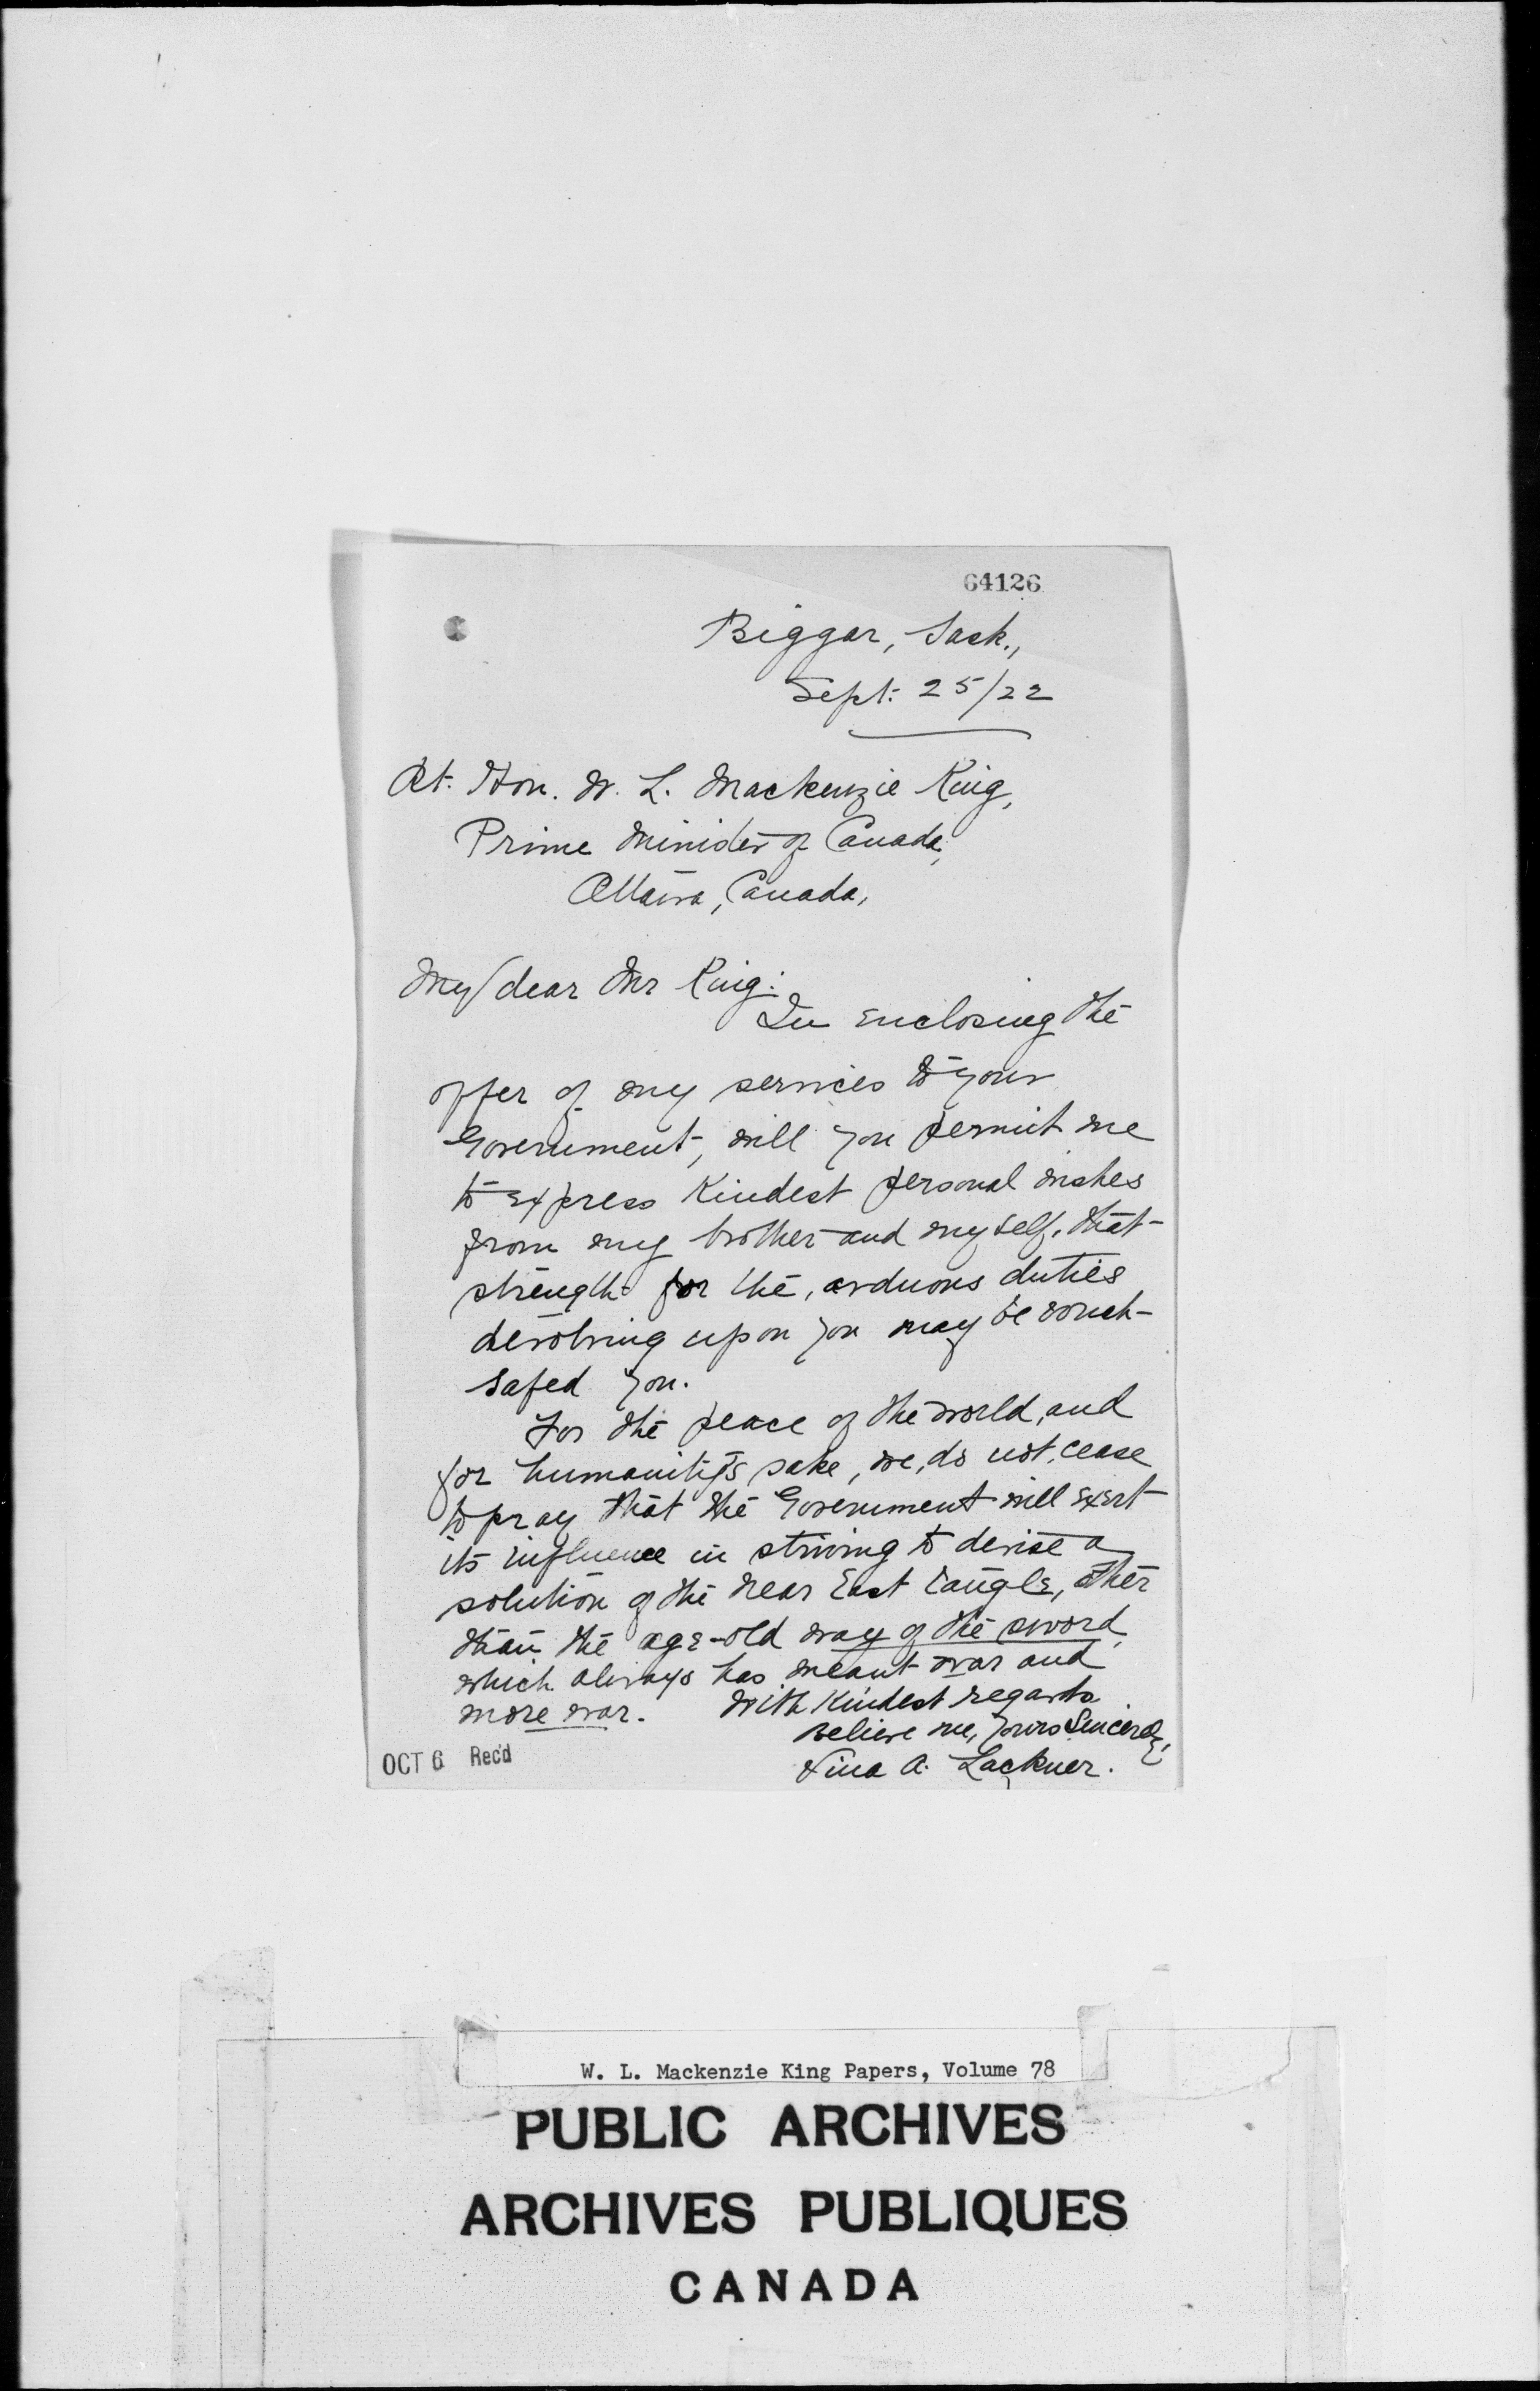 64126
Biggar, Sask.,
Sept. 25/22
Rt. Hon. W. L. Mackenzie King,
Prime Minister of Canada,
Ottawa, Canada,
My dear Mr King:
In enclosing the
offer of my services to your
Government, will you permit me
to express kindest personal wishes
from my brother and myself, that
strength for the, arduous duties
devolving upon you may be vouch-
safed you.
For the peace of the world, and
for humanity's sake, we, do not, cease
to pray that the Government will exert
its influence in striving to devise a
solution of the Near East tangle, other
than the age-old way of the sword,
which always has meant war and
more war. With kindest regards
Believe me, Yours Sincerely,
Nina A. Lackner.
OCT 6 Rec'd
W. L. Mackenzie King Papers, Volume 78
PUBLIC ARCHIVES
ARCHIVES PUBLIQUES
CANADA